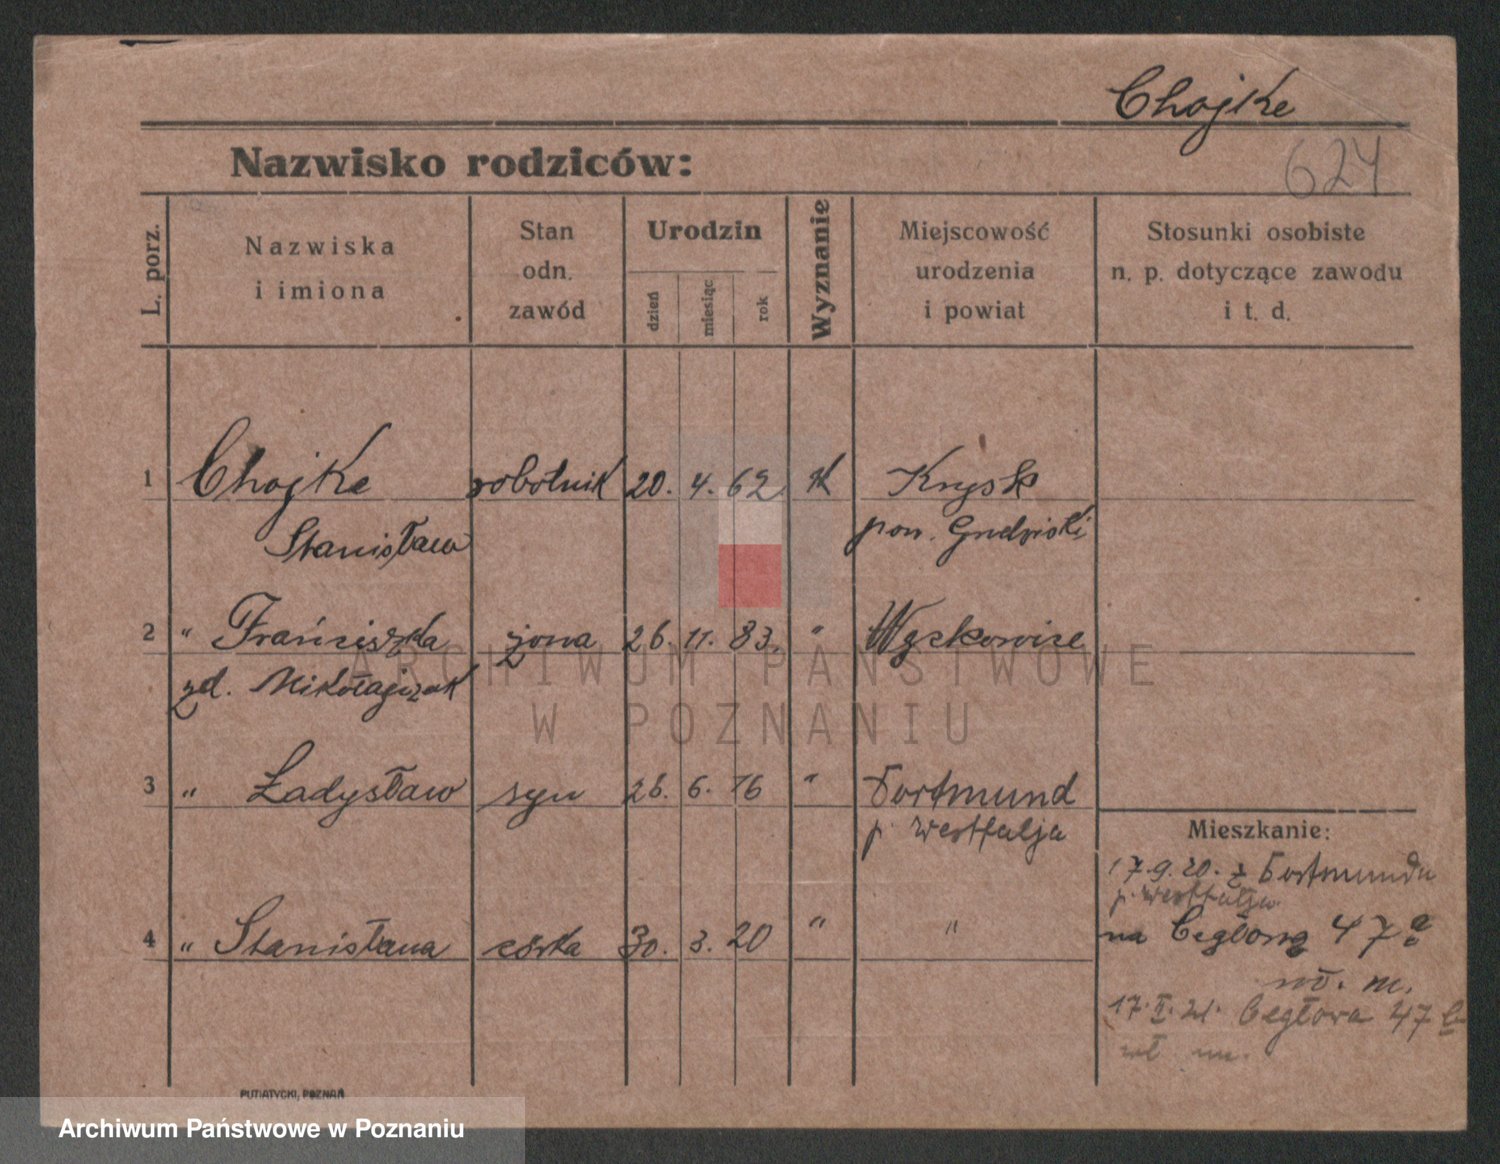 Chojke
Nazwisko rodziców:
624
L. porz.
Nazwiska
i imiona
Stan
odn.
zawód
Urodzin
dzień
miesiąc
rok
Wyznanie
Miejscowość
urodzenia
i powiat
Stosunki osobiste
n. p. dotyczące zawodu
i t. d.
1 Chojke robotnik 20. 4. 62. K Krysk
Stanisław pow.
2 " Franciszka żona 26. 11. 83. "
zd. Mikołajczak
3 " Ładysław syn 26. 6. 16 " Dortmund
p. Westfalja
Mieszkanie:
17.9.20. z Dortmundu
p. Westfalja
4 " Stanisława córka 30. 3. 20 " "
na Ceglona 47a
wł. m.
17. II. 21. Cegłowa 47
wł. m.
PUTIATYCKI, POZNAŃ
ARCHIWUM PAŃSTWOWE
W POZNANIU
Archiwum Państwowe w Poznaniu